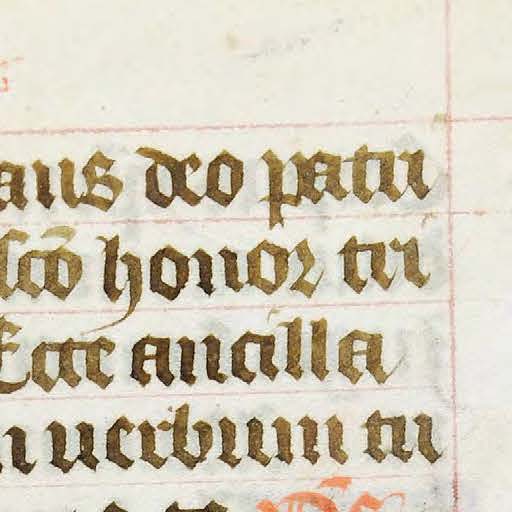 aus deo patri
sco᷑ honor tri
Ecce ancilla
m uerbum tu